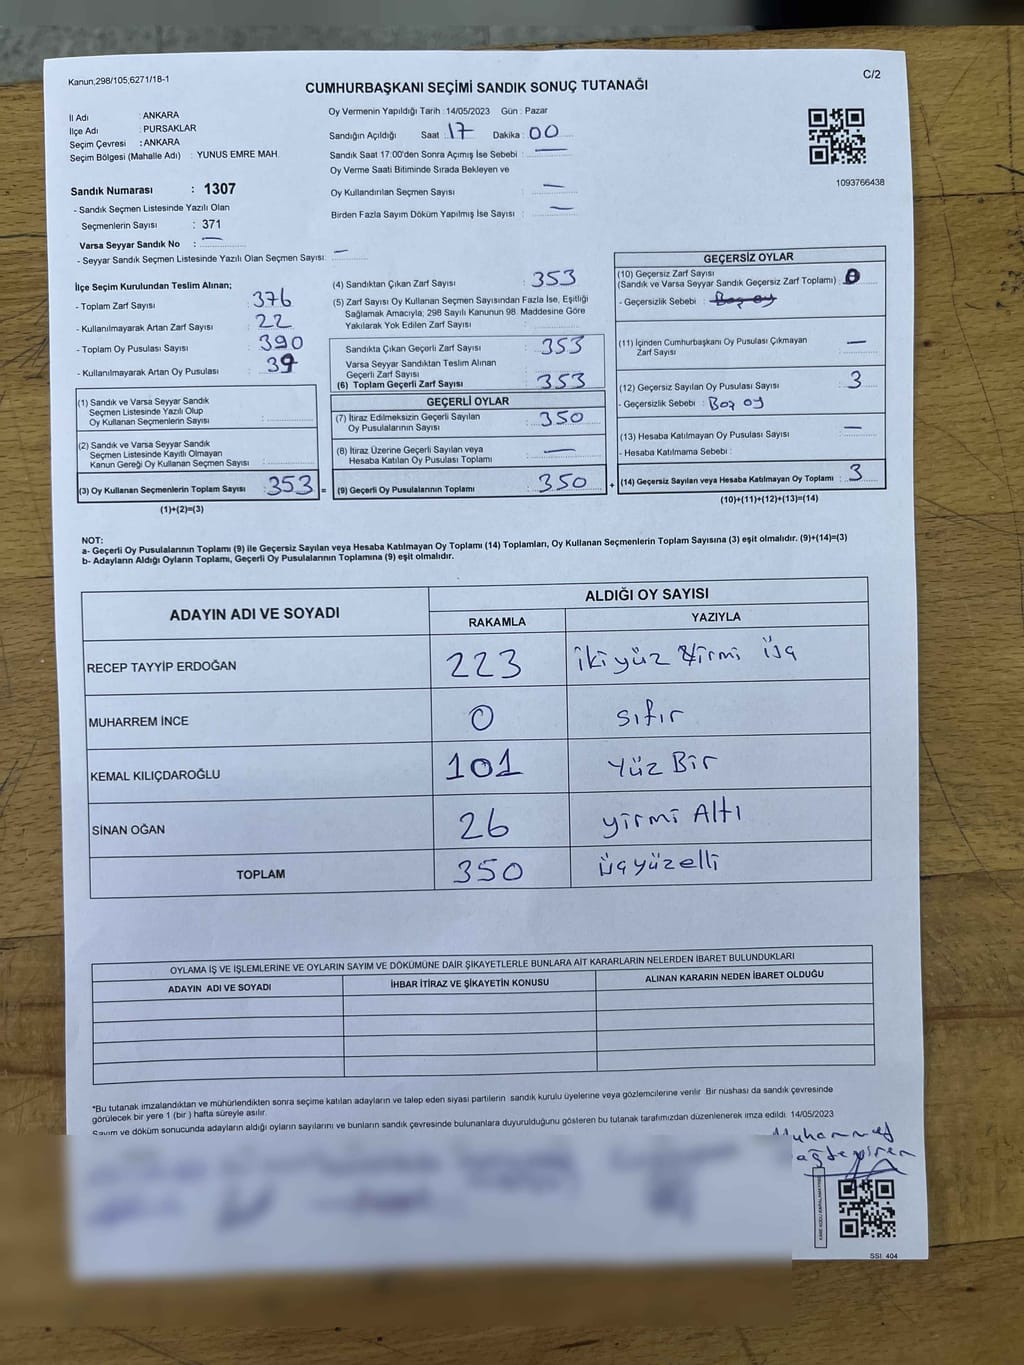 Kanun,298/105,6271/18-1
C/2
CUMHURBAŞKANI SEÇİMİ SANDIK SONUÇ TUTANAĞI
İl Adı : ANKARA
İlçe Adı : PURSAKLAR
Seçim Çevresi : ANKARA
Seçim Bölgesi (Mahalle Adı) : YUNUS EMRE MAH.
Oy Vermenin Yapıldığı Tarih : 14/05/2023 Gün : Pazar
Sandığın Açıldığı Saat : 17 Dakika : 00
Sandık Saat 17:00'den Sonra Açımış İse Sebebi : —
Oy Verme Saati Bitiminde Sırada Bekleyen ve
Oy Kullandırılan Seçmen Sayısı —
Birden Fazla Sayım Döküm Yapılmış İse Sayısı : —
1093766438
Sandık Numarası : 1307
- Sandık Seçmen Listesinde Yazılı Olan
Seçmenlerin Sayısı : 371
Varsa Seyyar Sandık No : —
- Seyyar Sandık Seçmen Listesinde Yazılı Olan Seçmen Sayısı: —
İlçe Seçim Kurulundan Teslim Alınan;
- Toplam Zarf Sayısı : 376
- Kullanılmayarak Artan Zarf Sayısı : 22
- Toplam Oy Pusulası Sayısı : 390
- Kullanılmayarak Artan Oy Pusulası : 39
(1) Sandık ve Varsa Seyyar Sandık
Seçmen Listesinde Yazılı Olup
Oy Kullanan Seçmenlerin Sayısı :
(2) Sandık ve Varsa Seyyar Sandık
Seçmen Listesinde Kayıtlı Olmayan
Kanun Gereği Oy Kullanan Seçmen Sayısı :
(3) Oy Kullanan Seçmenlerin Toplam Sayısı : 353 =
(1)+(2)=(3)
(4) Sandıktan Çıkan Zarf Sayısı : 353
(5) Zarf Sayısı Oy Kullanan Seçmen Sayısından Fazla İse, Eşitliği
Sağlamak Amacıyla; 298 Sayılı Kanunun 98. Maddesine Göre
Yakılarak Yok Edilen Zarf Sayısı :
Sandıkta Çıkan Geçerli Zarf Sayısı : 353
Varsa Seyyar Sandıktan Teslim Alınan
Geçerli Zarf Sayısı :
(6) Toplam Geçerli Zarf Sayısı : 353
GEÇERLİ OYLAR
(7) İtiraz Edilmeksizin Geçerli Sayılan
Oy Pusulalarının Sayısı : 350
(8) İtiraz Üzerine Geçerli Sayılan veya
Hesaba Katılan Oy Pusulası Toplamı : —
(9) Geçerli Oy Pusulalarının Toplamı : 350 +
GEÇERSİZ OYLAR
(10) Geçersiz Zarf Sayısı
(Sandık ve Varsa Seyyar Sandık Geçersiz Zarf Toplamı) : 0
- Geçersizlik Sebebi : Boş oy
(11) İçinden Cumhurbaşkanı Oy Pusulası Çıkmayan
Zarf Sayısı : —
(12) Geçersiz Sayılan Oy Pusulası Sayısı : 3
- Geçersizlik Sebebi : Boş oy
(13) Hesaba Katılmayan Oy Pusulası Sayısı : —
- Hesaba Katılmama Sebebi :
(14) Geçersiz Sayılan veya Hesaba Katılmayan Oy Toplamı : 3
(10)+(11)+(12)+(13)=(14)
NOT:
a- Geçerli Oy Pusulalarının Toplamı (9) ile Geçersiz Sayılan veya Hesaba Katılmayan Oy Toplamı (14) Toplamları, Oy Kullanan Seçmenlerin Toplam Sayısına (3) eşit olmalıdır. (9)+(14)=(3)
b- Adayların Aldığı Oyların Toplamı, Geçerli Oy Pusulalarının Toplamına (9) eşit olmalıdır.
ADAYIN ADI VE SOYADI
ALDIĞI OY SAYISI
RAKAMLA YAZIYLA
RECEP TAYYİP ERDOĞAN 223 ikiyüz yirmi üç
MUHARREM İNCE 0 sıfır
KEMAL KILIÇDAROĞLU 101 Yüz Bir
SİNAN OĞAN 26 yirmi Altı
TOPLAM 350 üçyüzelli
OYLAMA İŞ VE İŞLEMLERİNE VE OYLARIN SAYIM VE DÖKÜMÜNE DAİR ŞİKAYETLERLE BUNLARA AİT KARARLARIN NELERDEN İBARET BULUNDUKLARI
ADAYIN ADI VE SOYADI İHBAR İTİRAZ VE ŞİKAYETİN KONUSU ALINAN KARARIN NEDEN İBARET OLDUĞU
*Bu tutanak imzalandıktan ve mühürlendikten sonra seçime katılan adayların ve talep eden siyasi partilerin sandık kurulu üyelerine veya gözlemcilerine verilir. Bir nüshası da sandık çevresinde
görülecek bir yere 1 (bir ) hafta süreyle asılır.
Sayım ve döküm sonucunda adayların aldığı oyların sayılarını ve bunların sandık çevresinde bulunanlara duyurulduğunu gösteren bu tutanak tarafımızdan düzenlenerek imza edildi. 14/05/2023
Muhammed
SSI: 404